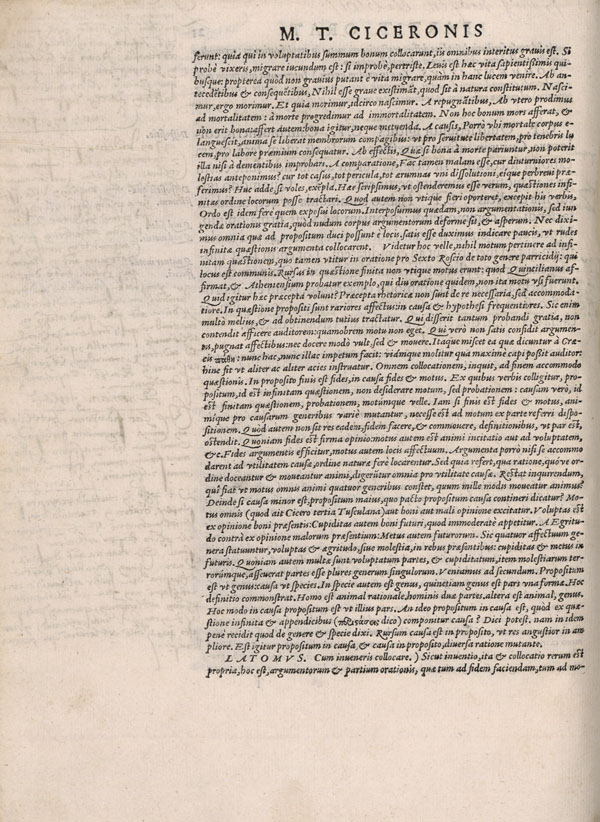 M. T. CICERONIS
ferunt: quia qui in voluptatibus summum bonum collocarunt, iis omnibus interitus gravis est. Si
probè vixeris, migrare iucundum est: si improbè, pertriste. Levis est hæc vita sapientissimis qui-
busque: propterea quòd non gravius putant è vita migrare, quàm in hanc lucem venire. Ab an-
tecedētibus & consequētibus, Nihil esse grave existimāt, quod sit à natura constitutum. Nasci-
mur, ergo morimur. Et quia morimur, idcirco nascimur. A repugnātibus, Ab vtero prodimus
ad mortalitatem: à morte progredimur ad immortalitatem. Non hoc bonum mors afferat, &
non erit bona: affert autem: bona igitur, neque metuenda. A causis, Porrò vbi mortale corpus e-
languescit, anima se liberat membrorum compagibus: vt pro servitute libertatem, pro tenebris lu
cem, pro labore præmium consequatur. Ab effectis, Quæ si bona à morte pariuntur, non poterit
illa nisi à dementibus improbari. A comparatione, Fac tamen malam esse, cur diuturniores mo-
lestias anteponimus? cur tot casus, tot pericula, tot ærumnas vni dissolutioni, eique perbrevi præ-
ferimus? Huc adde, si voles, exēpla. Hæc scripsimus, vt ostenderemus esse verum, quæstiones infi-
nitas ordine locorum posse tractari. Quod autem non vtique fieri oporteret, excepit his verbis,
Ordo est idem fere quem exposui locorum. Interposuimus quædam, non argumentationis, sed iun-
gendæ orationis gratia, quòd nudum corpus argumentorum deforme sit, & asperum. Nec dixi-
mus omnia quæ ad propositum duci possunt è locis. satis esse duximus indicare paucis, vt rudes
infinitæ quæstionis argumenta collocarent. Videtur hoc velle, nihil motum pertinere ad infi-
nitam quæstionem, quo tamen vtitur in oratione pro Sexto Roscio de toto genere parricidij: qui
locus est communis. Rursus in quæstione finita non vtique motus erunt: quod Quintilianus af-
firmat, & Atheniensium probatur exemplo, qui diu oratione quidem, non ita motu vsi fuerunt.
Quid igitur hæc præcepta volunt? Præcepta rhetoricæ non sunt de re necessaria, sed accommoda-
tiore. In quæstione propositi sunt rariores affectus: in causa & hypothesi frequentiores. Sic enim
multò melius, & ad obtinendum tutius tractatur. Qui disserit tantum probandi gratia, non
contendit afficere auditorem: quamobrem motu non eget. Qui verò non satis confidit argumen-
tis, pugnat affectibus: nec docere modò vult, sed & movere. Itaque miscet ea quæ dicuntur à Græ-
cis πάθη: nunc hac, nunc illac impetum facit: vidimque molitur qua maximè capi possit auditor:
hinc fit vt aliter ac aliter acies instruatur. Omnem collocationem, inquit, ad finem accommodo
quæstionis. In proposito finis est fides, in causa fides & motus. Ex quibus verbis colligitur, pro-
positum, id est infinitam quæstionem, non desiderare motum, sed probationem: causam verò, id
est finitam quæstionem, probationem, motúmque velle. Iam si finis est fides & motus, ani-
mique pro causarum generibus variè mutantur, necesse est ad motum ex parte referri dispo-
sitionem. Quòd autem non sit res eadem, fidem facere, & commovere, definitionibus, vt par est,
ostendit. Quoniam fides est firma opinio: motus autem est animi incitatio aut ad voluptatem,
&c. Fides argumentis efficitur, motus autem locis affectuum. Argumenta porrò nisi se accommo
darent ad vtilitatem causæ, ordine naturæ ferè locarentur. Sed quia refert, qua ratione, quóve or-
dine doceantur & moveantur animi, digerūtur omnia pro vtilitate causæ. Restat inquirendum,
quî fiat vt motus omnis animi quatuor generibus constet, quum mille modis moveatur animus?
Deinde si causa minor est, propositum maius, quo pacto propositum causa contineri dicatur? Mo-
tus omnis (quod ait Cicero tertia Tusculana) aut boni aut mali opinione excitatur. Voluptas est
ex opinione boni præsentis: Cupiditas autem boni futuri, quod immoderatè appetitur. AEgritu-
do contrà ex opinione malorum præsentium: Metus autem futurorum. Sic quatuor affectuum ge-
nera statuuntur, voluptas & ægritudo, sive molestia, in rebus præsentibus: cupiditas & metus in
futuris. Quoniam autem multæ sunt voluptatum partes, & cupiditatum, item molestiarum ter-
rorúmque, asseverat partes esse plures generum singulorum. Veniamus ad secundum. Propositum
est vt genus: causa vt species. In specie autem est genus, quinetiam genus est pars vna formæ. Hoc
definitio commonstrat. Homo est animal rationale, hominis duæ partes, altera est animal, genus.
Hoc modo in causa propositum est vt illius pars. An ideo propositum in causa est, quòd ex quæ-
stione infinita & appendicibus (περιστάσεις dico) componitur causa? Dici potest. nam in idem
penè recidit quod de genere & specie dixi. Rursum causa est in proposito, vt res angustior in am
pliore. Est igitur propositum in causa, & causa in proposito, diversa ratione mutante.
LATOMVS. Cum inveneris collocare.) Sicut inventio, ita & collocatio rerum est
propria, hoc est, argumentorum & partium orationis, quæ tum ad fidem faciendam, tum ad mo-